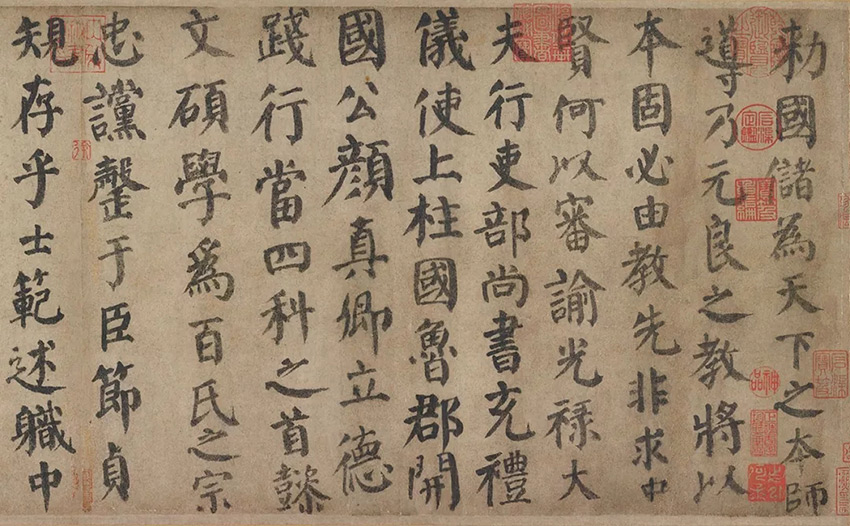 勅國儲為天下之本師
導乃元良之教將以
本固必由教先非求中
賢何以審諭光祿大
夫行吏部尚書充禮
儀使上柱國魯郡開
國公顔真卿立德
踐行當四科之首懿
文碩學爲百氏之宗
忠讜罄于臣節貞
規存乎士範述職中
神品